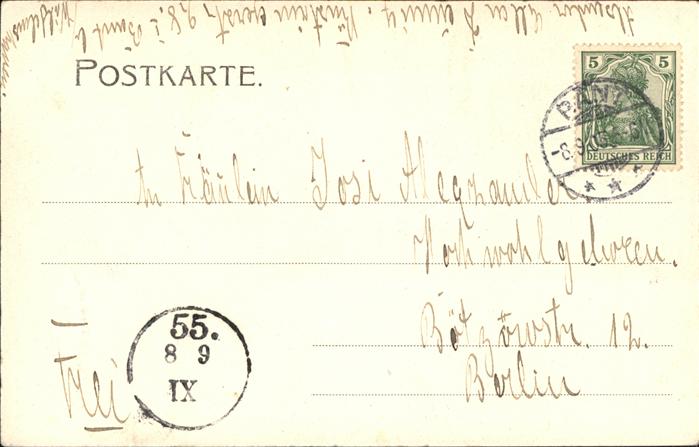 Absender Ellen
Wilhelmshaven.
POSTKARTE.
5 5
DEUTSCHES REICH
BANT
-8.9.05
An Fräulein Josi Alexander
Hochwohlgeboren.
Bötzowstr. 12.
Berlin
Frei
55.
8 9
IX